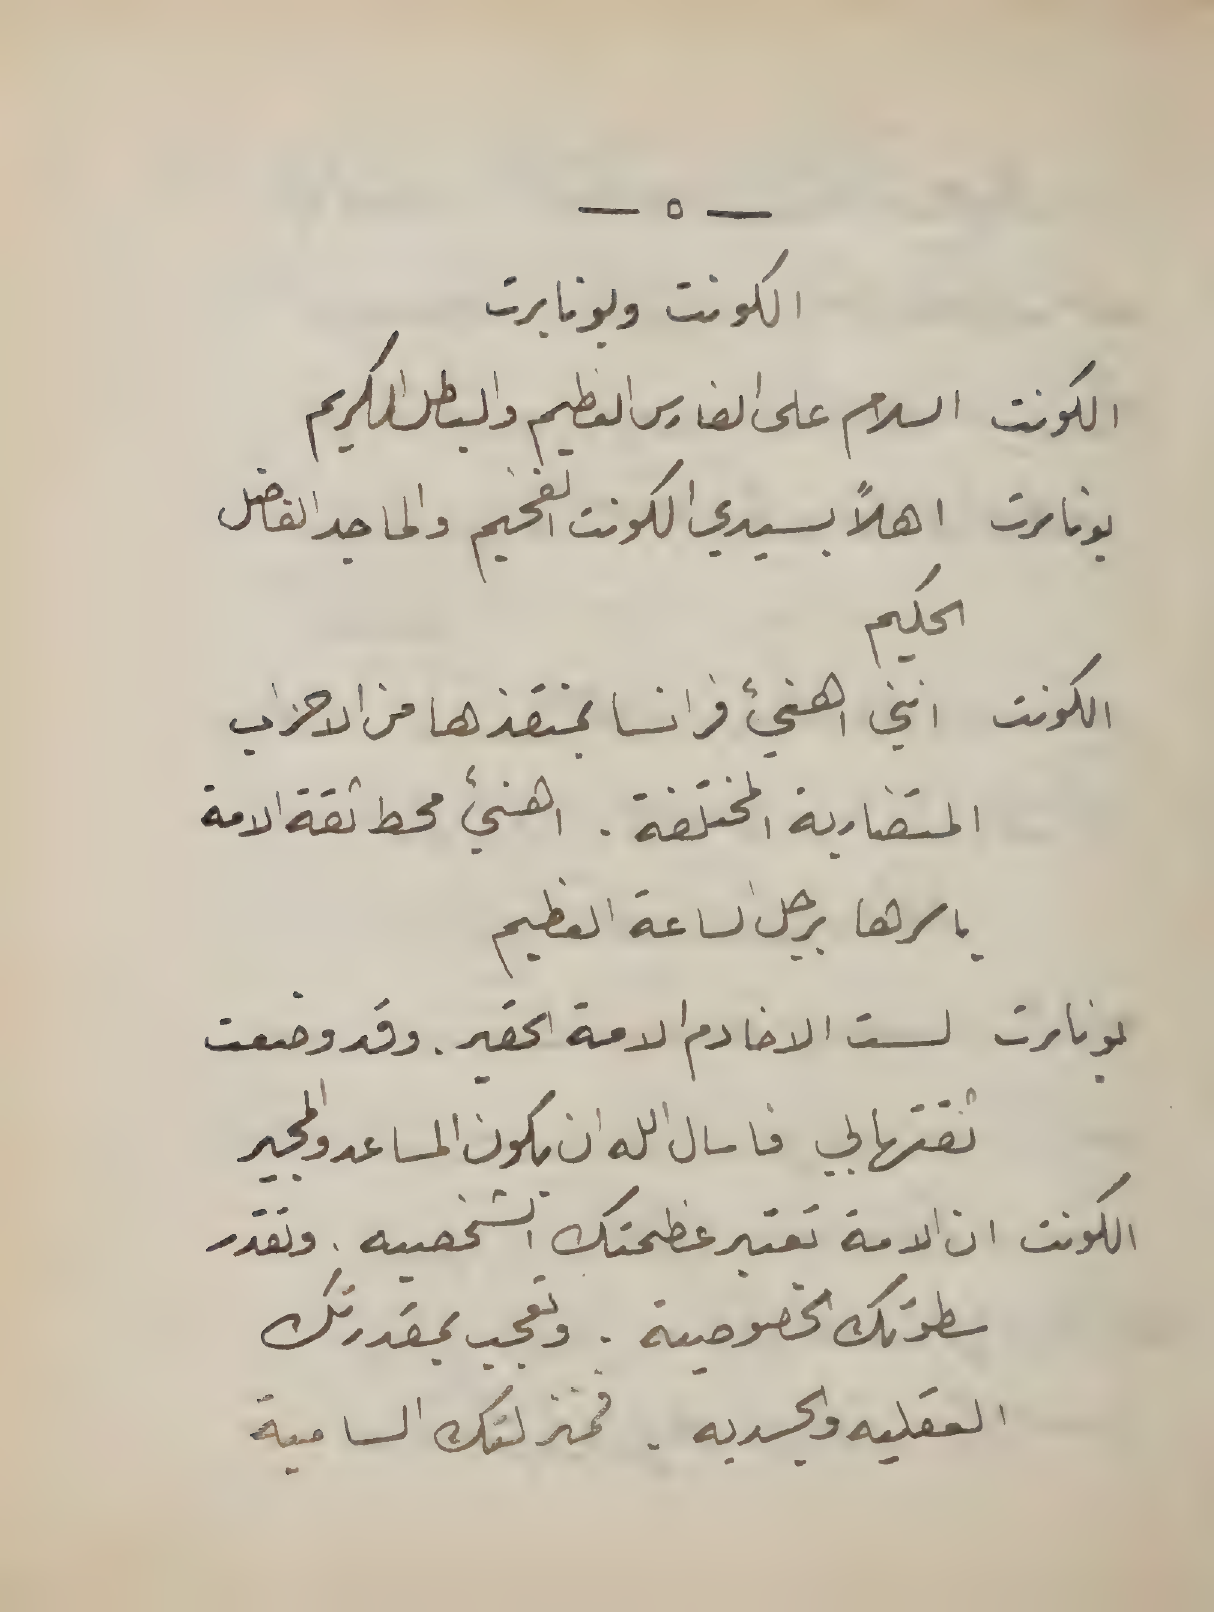 — ٥ —
الكونت وبونابرت
الكونت السلام على الفارس العظيم والبطل الكريم
بونابرت اهلاً بسيدي الكونت الفخيم والماجد الفاضل
الحكيم
الكونت انني اهنئ فرانسا بمنقذها من الاحزاب
المتضاربة المختلفة . اهنئ محط ثقة الامة
باسرها برجل الساعة العظيم
بونابرت لست الا خادم الامة الحقير . وقد وضعت
ثقتها بي فاسال الله ان يكون المساعد والمجير
الكونت ان الامة تعتبر عظمتك الشخصيه . وتقدر
سطوتك الخصوصية . وتعجب بمقدرتك
العقليه والجسديه . فمنزلتك السامية